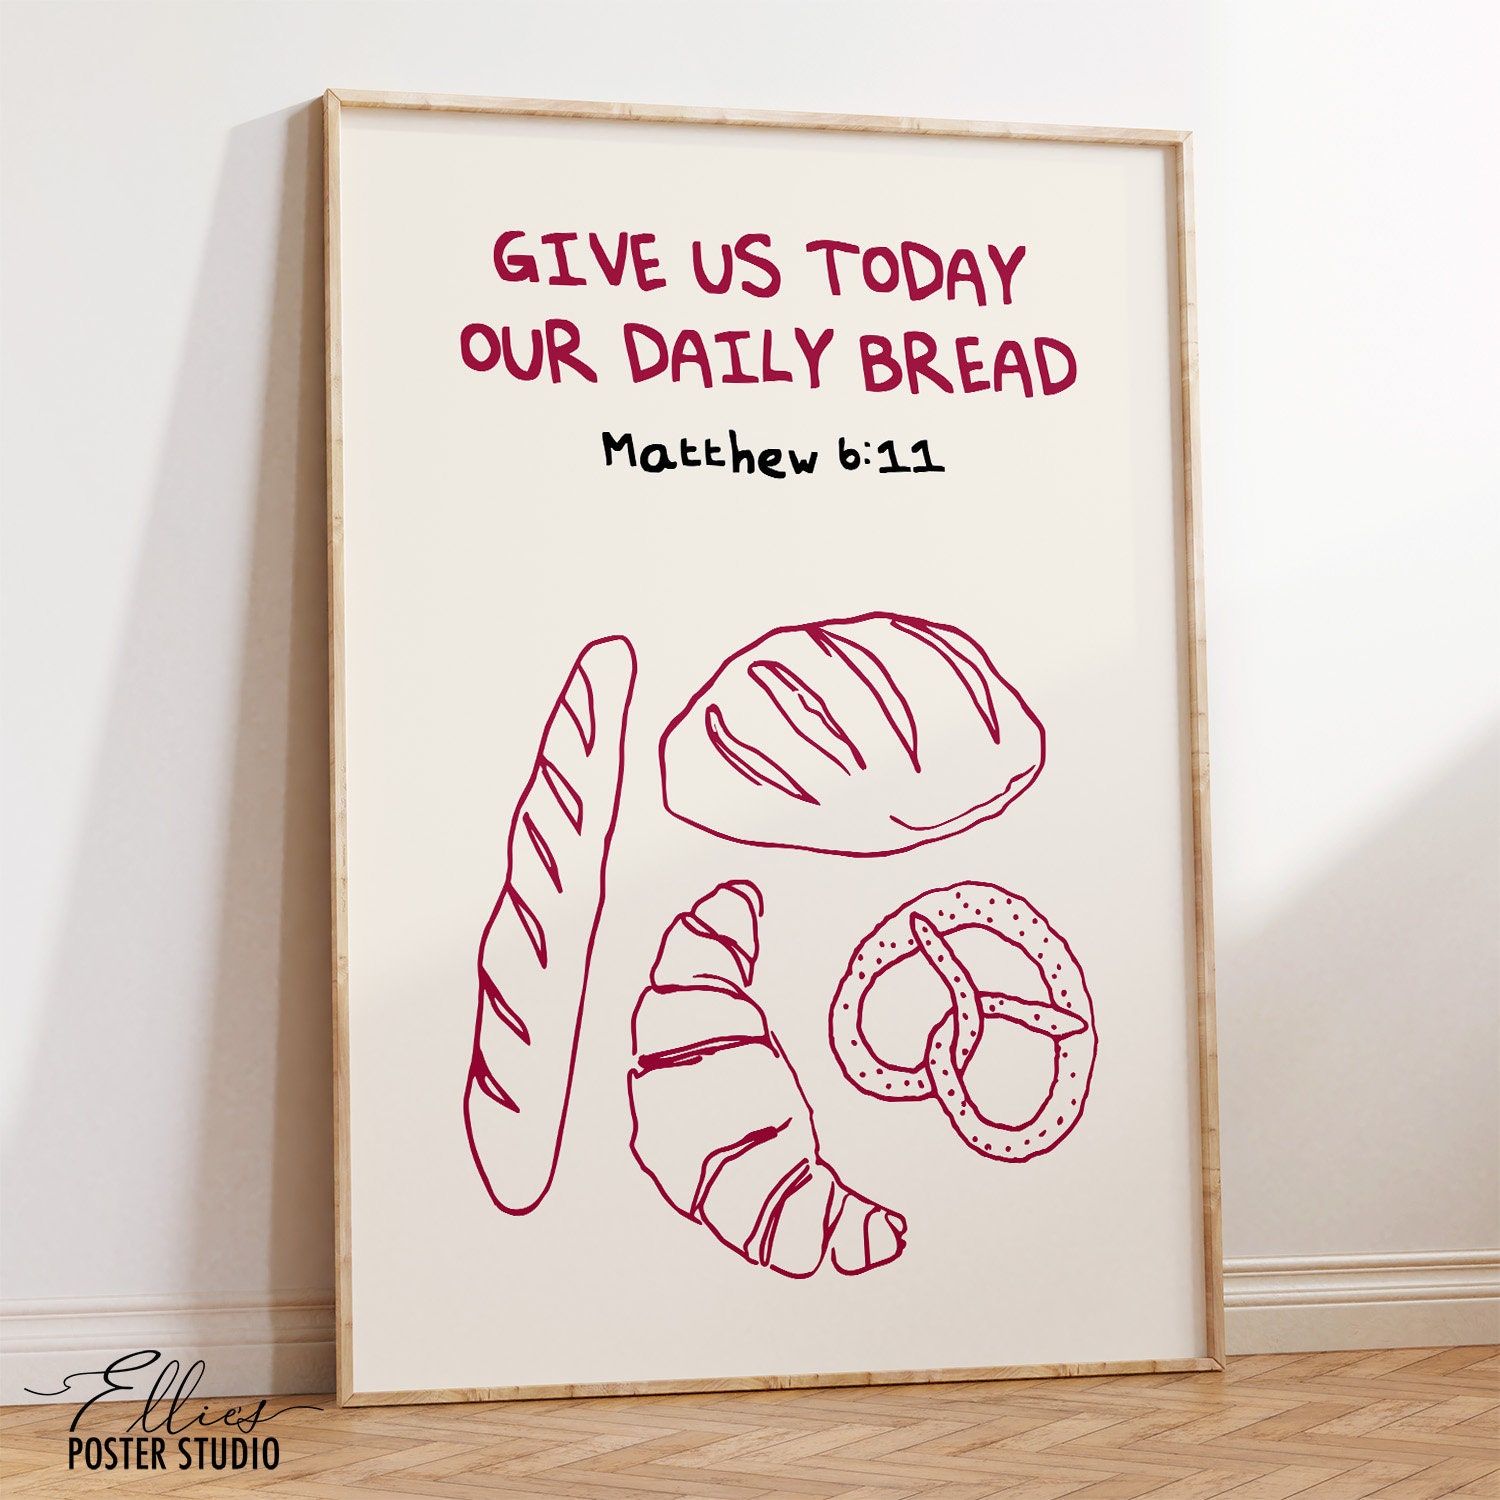 GIVE US TODAY
OUR DAILY BREAD
Matthew 6:11
Ellie's
POSTER STUDIO